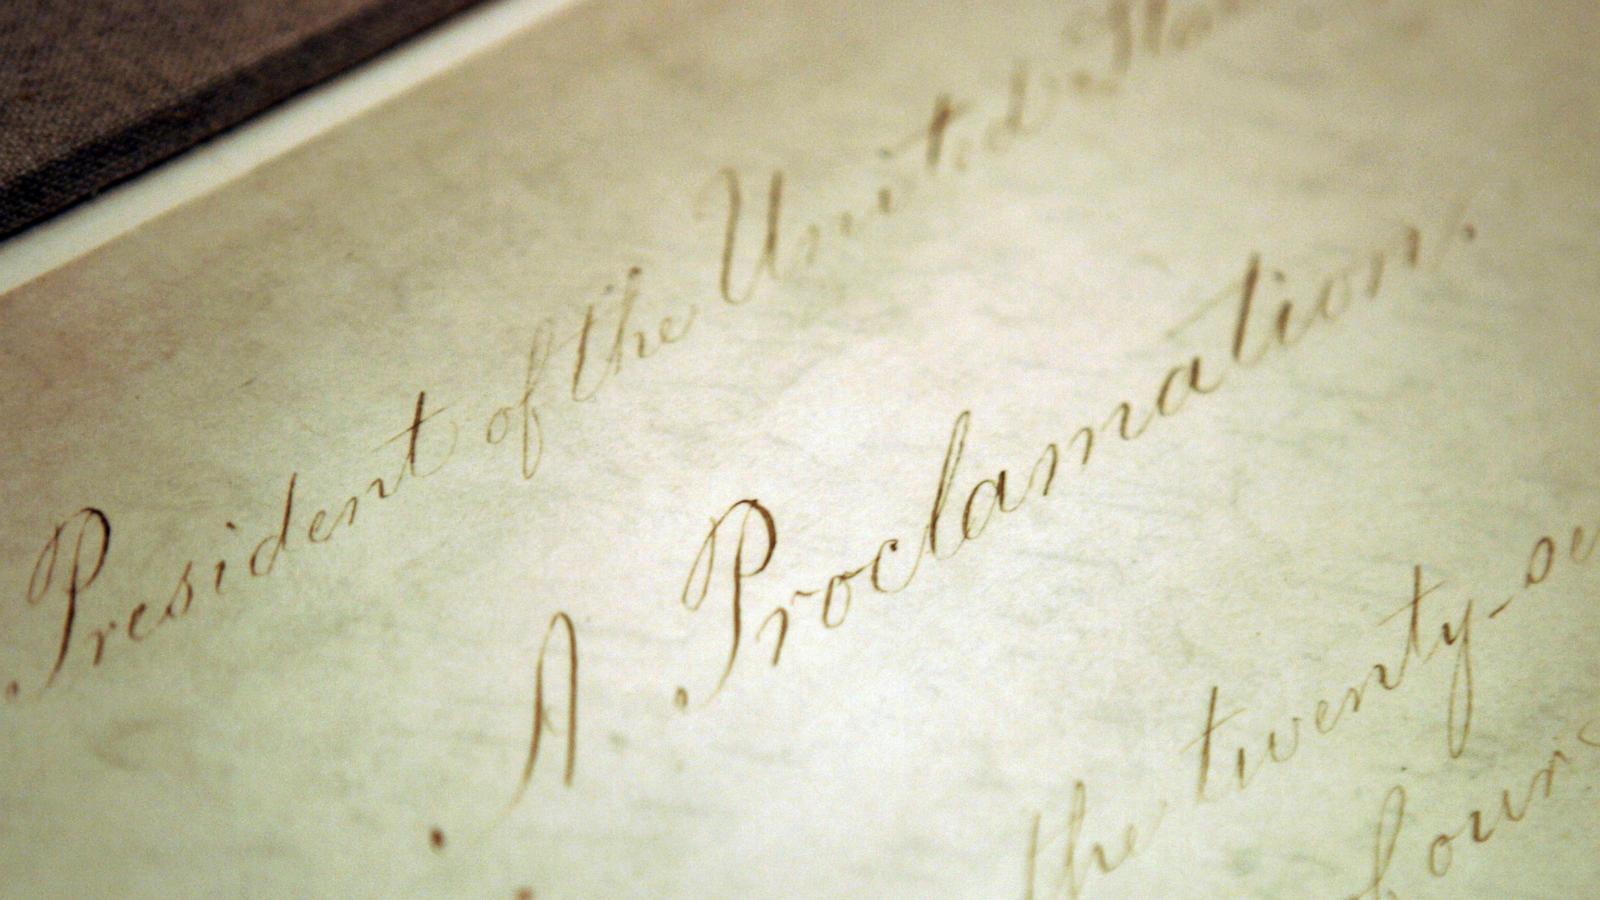 President of the United
A Proclamation.
the twenty-
of our